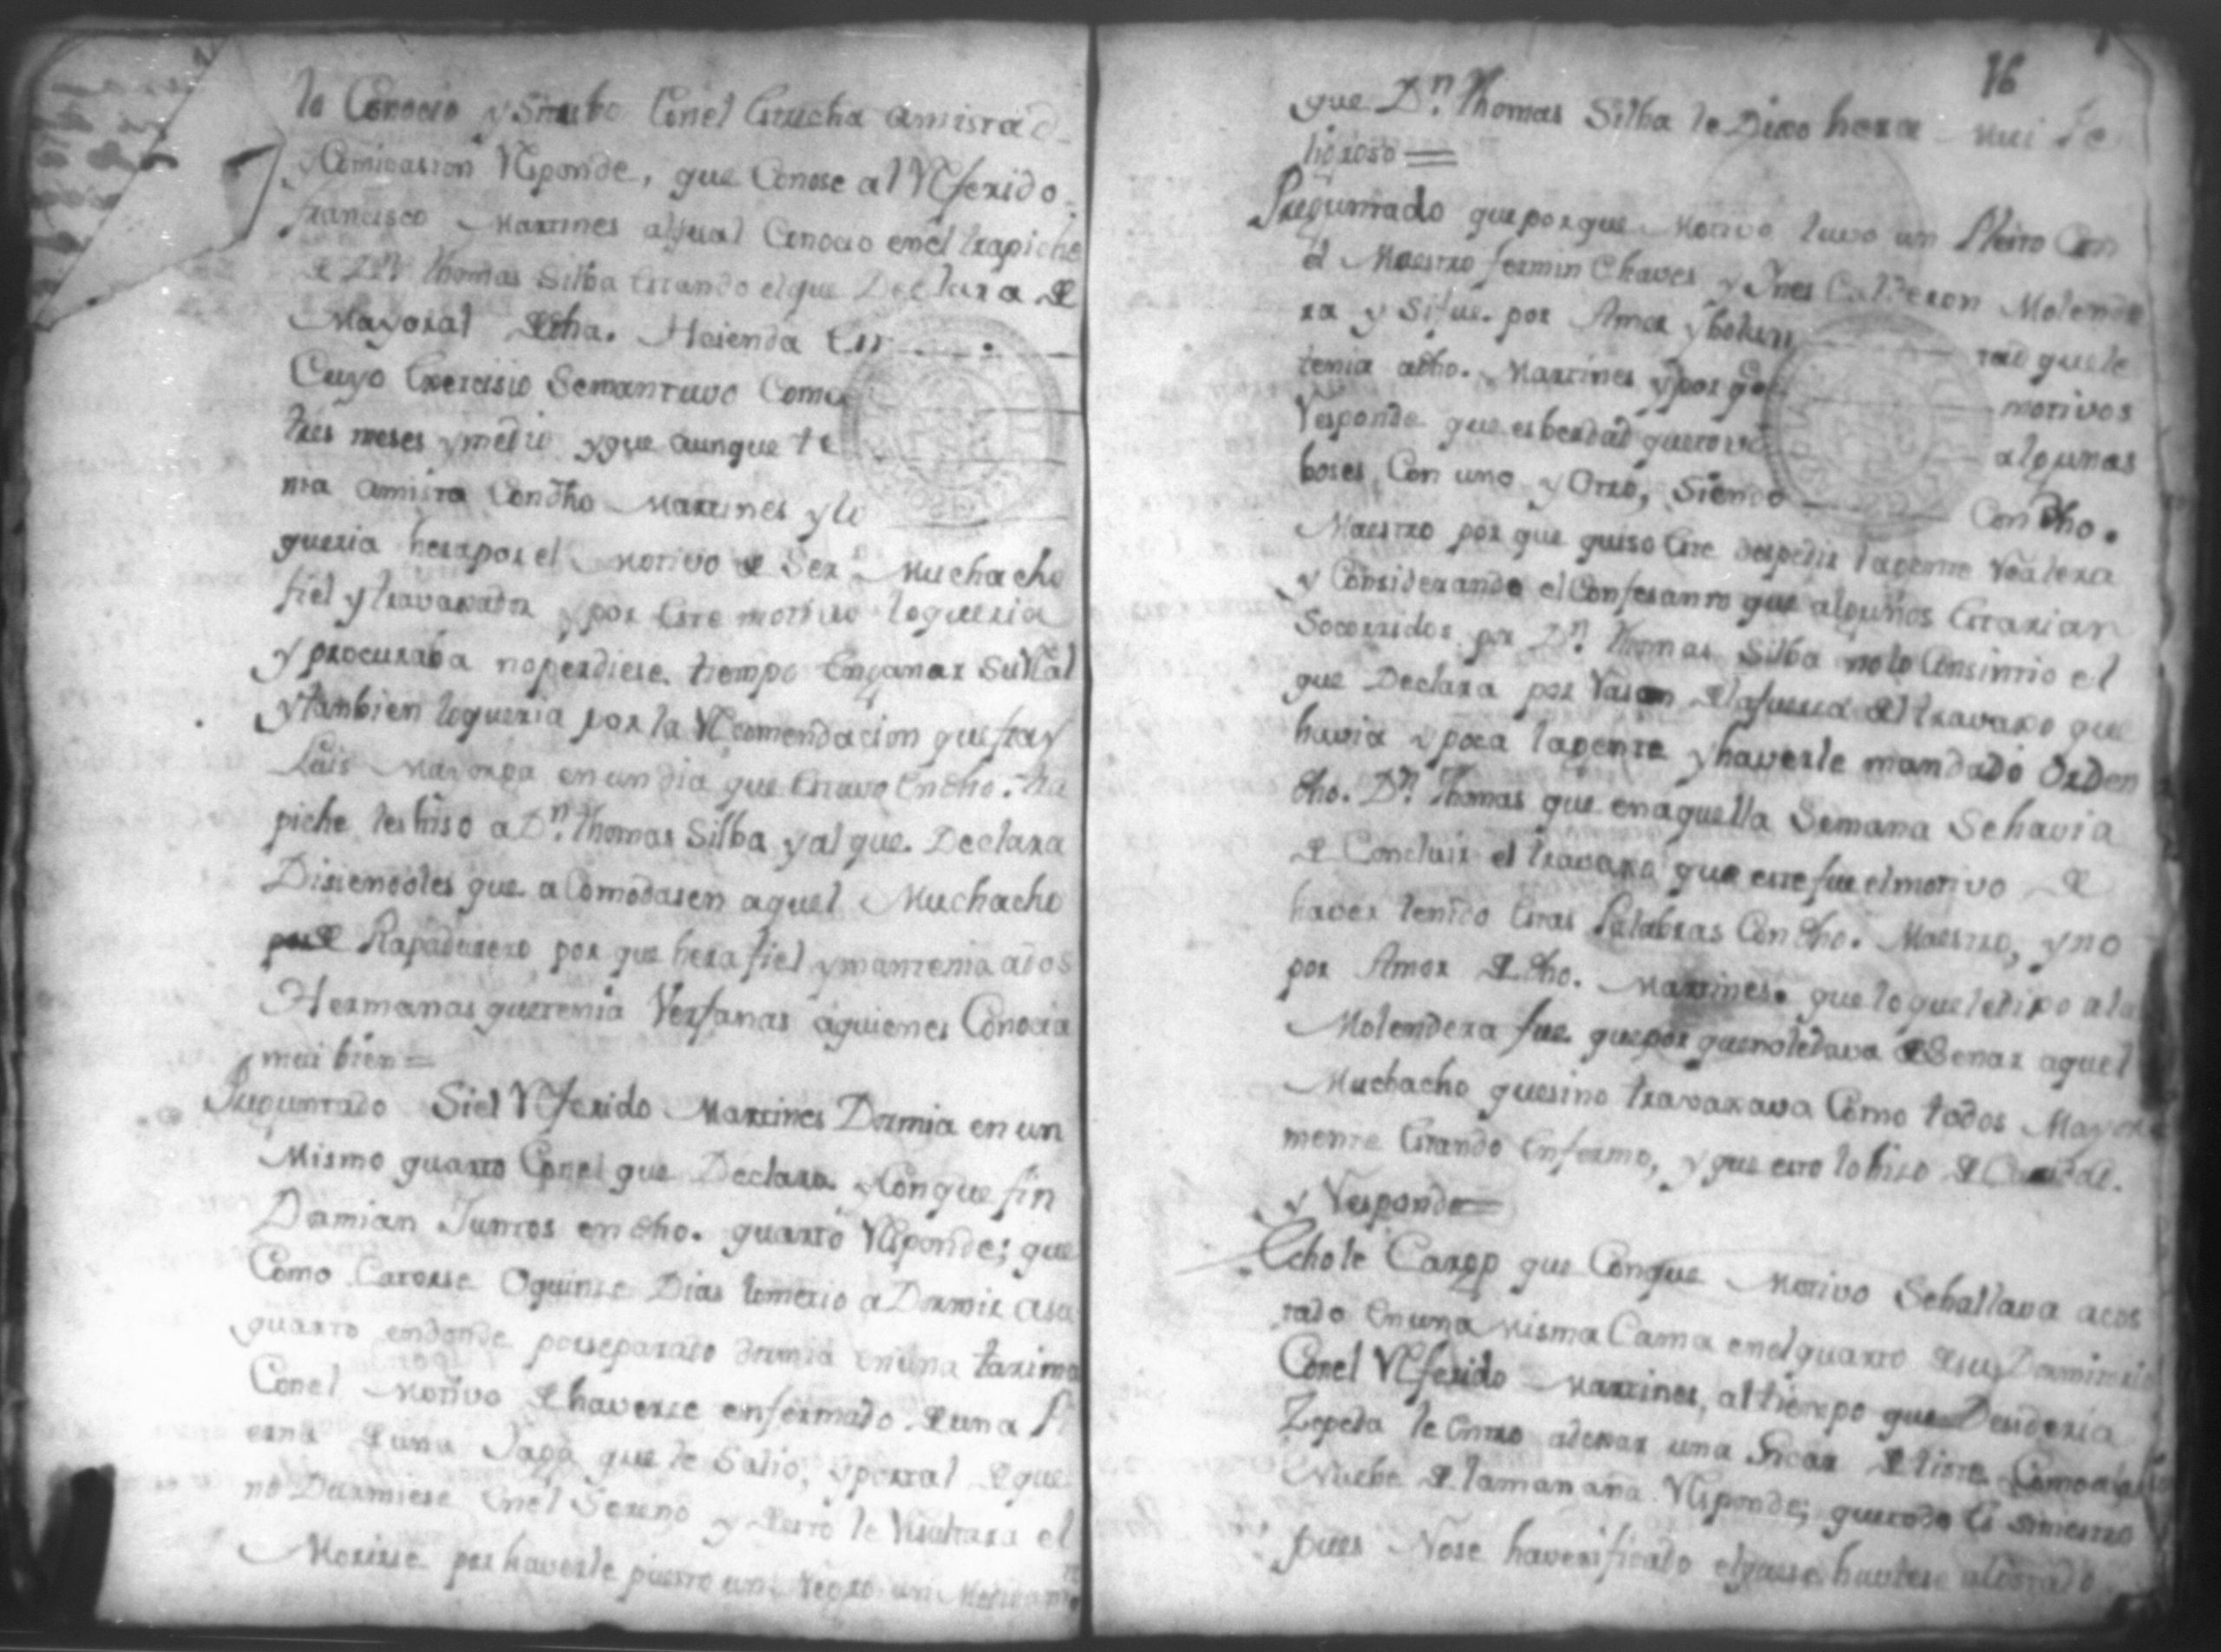 lo Conocio y Situbo Conel Grucha amistad
y Comicasion Responde, que Conose al Referido
francisco Martines alqual Conocio enel trapiche
de Dn. Thomas Silba Estando elque Declara de
Mayoral de dha. Hasienda En
Cuyo Exersisio Semantuvo Como
tres meses y medio y que aunque te
nia amista Condho Martines y lo
queria hera por el Motivo de Ser Muchacho
fiel y travaxador y por Este motivo loqueria
y procuraba noperdiese tiempo Enganar su Ral
y tambien loqueria por la Recomendacion que fray
Luis Mayorga en un dia que Estuvo En dho. tra
piche les hiso a Dn. Thomas Silba y al que Declara
Disiendoles que acomodasen aquel Muchacho
de Rapadurero por que hera fiel y mantenia ados
Hermanas quetenia Verfanas aquienes Conocia
mui bien =
Preguntado Siel Referido Martines Dormia en un
Mismo quarto Conel que Declara y Conque fin
Dormian Juntos en dho. quarto Responde; que
Como Catorse Oquinse Dias lometio a Dormir asu
quarto endonde por separado dormia en una tarima
Conel Motivo de haverse enfermado de una Pi
erna de una Yaga que le Salio, y portal de que
no Durmiese Enel Sereno y de esto le Resultara el
Morirse por haverle puesto un Negro un Medicamto
16
que Dn. Thomas Silba le Dixo hera mui Pe
ligroso =
Preguntado que por que Motivo tuvo un Pleito Con
el Maestro fermin Chaves y Ynes Calderon Molende
ra y Si fue por Amor y bolun tad que le
tenia a dho. Martines y por que motivos
Responde que es berdad que tuvo algunas
boses Con uno y Otro, Siendo Con dho.
Maestro por que quiso Este despedir la gente Realera
y Considerando el Confesante que algunos Estarian
Socorridos por Dn. Thomas Silba nolo Consintio el
que Declara por Rason de la fuersa del travaxo que
havia y poca la gente y haverle mandado Orden
dho. Dn. Thomas que en aquella Semana Sehavia
de Concluir el travaxo que este fue el motivo de
haver tenido Estas Palabras Con dho. Maestro, y no
por Amor de dho. Martines que lo que le dixo a la
Molendera fue que por que no le dava de Senar aquel
Muchacho que sino travaxava Como todos Mayor
mente Estando Enfermo, y que esto lo hiso de Caridad.
y Responde =
Echole Cargo que Conque Motivo Sehallava acos
tado En una Misma Cama enel quarto desu Dormitorio
Conel Referido Martines, al tiempo que Desideria
Zepeda le Entro adexar una Sicar de tiste Como alas
Nuebe de la mañana Responde; que todo Es siniestro
pues Nose haverificado elquese huviese acostado